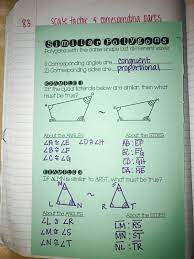 8.3 scale factor & corresponding parts
Similar Polygons
Polygons with the same shape but different sizes
1) Corresponding angles are congruent
2) Corresponding sides are proportional
EXAMPLE 1
If the quadrilaterals below are similar, then what must be true?
About the ANGLES About the SIDES
∠A ≅ ∠E ∠D ≅ ∠H AB : EF
∠B ≅ ∠F BC : FG
∠C ≅ ∠G CD : GH
DA : HE
EXAMPLE 2
If ΔLMN is similar to ΔRST, what must be true?
M S
L N R T
About the ANGLES About the SIDES
∠L ≅ ∠R LM : RS
∠M ≅ ∠S MN : ST
∠N ≅ ∠T NL : TR